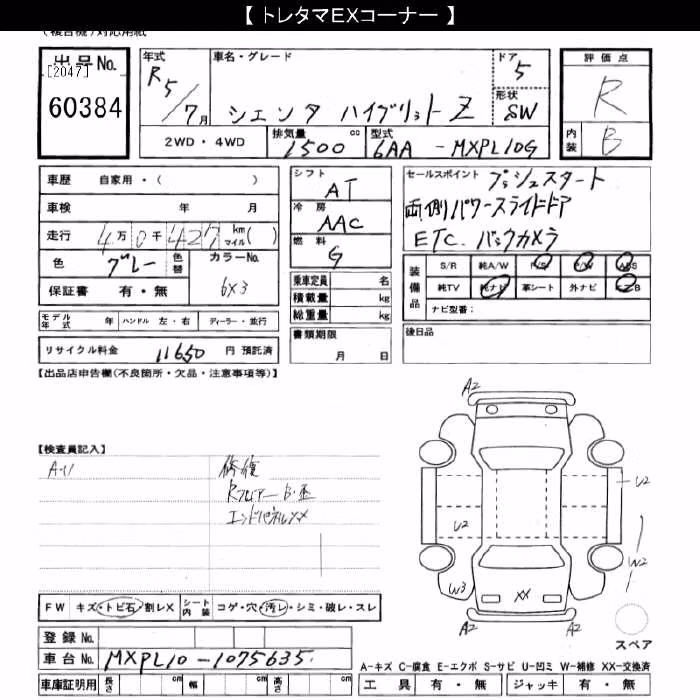 【 トレタマEXコーナー 】
(複合機)対応用紙
出品No.
[2047]
60384
年式
R5/7月
車名・グレード
シエンタ ハイブリット Z
ドア
5
形状
SW
2WD・4WD
排気量 1500 cc
型式 6AA - MXPL10G
評価点
R
内装
B
車歴 自家用・( )
車検 年 月
走行 4万0千427 km マイル( )
色 グレー 色替
カラーNo.
6X3
保証書 有・無
モデル年式 年 ハンドル 左・右 ディーラー・並行
リサイクル料金 11650 円 預託済
シフト
AT
冷房
AAC
燃料
G
乗車定員 名
積載量 kg
総重量 kg
書類期限
月 日
セールスポイント プッシュスタート
両側パワースライドドア
ETC. バックカメラ
装備品
S/R 純A/W P/S P/W ABS
純TV 純ナビ 革シート 外ナビ エアB
ナビ型番:
後日品
【出品店申告欄(不良箇所・欠品・注意事項等)】
【検査員記入】
A-U
修復
Rフロアー B・歪
エンドパネルXX
A2
U2
U2
W2
W3
XX
A2
A2
スペア
FW キズ・トビ石・割レX シート内装 コゲ・穴・汚レ・シミ・破レ・スレ
登録No.
車台No. MXPL10-1075635
A-キズ C-腐食 E-エクボ S-サビ U-凹ミ W-補修 XX-交換済
車庫証明用 長さ cm 幅 cm 高さ cm
工具 有・無 ジャッキ 有・無